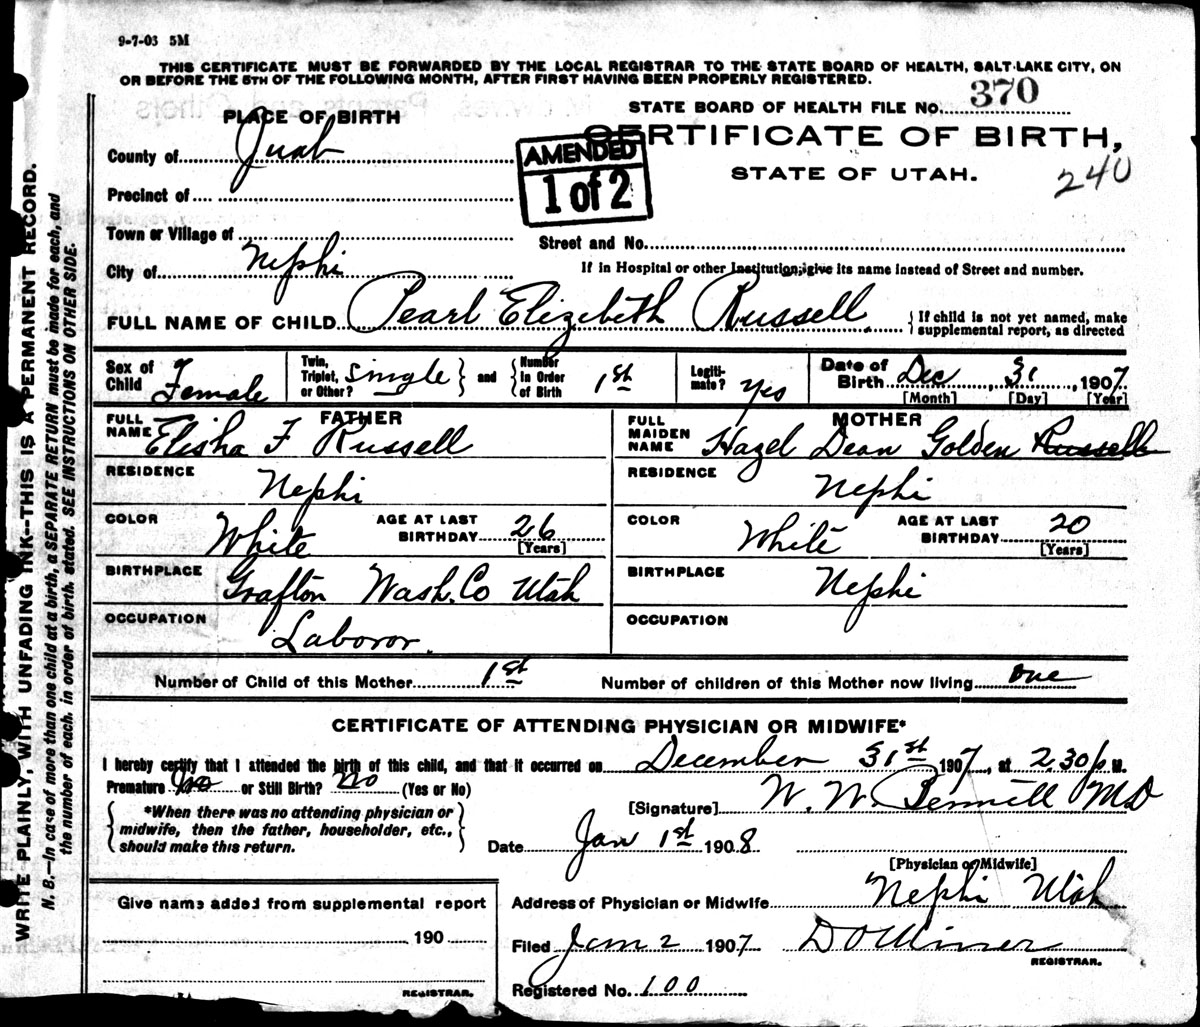 9-7-03 5M
THIS CERTIFICATE MUST BE FORWARDED BY THE LOCAL REGISTRAR TO THE STATE BOARD OF HEALTH, SALT LAKE CITY, ON
OR BEFORE THE 5TH OF THE FOLLOWING MONTH, AFTER FIRST HAVING BEEN PROPERLY REGISTERED.
STATE BOARD OF HEALTH FILE No. 370
PLACE OF BIRTH
CERTIFICATE OF BIRTH,
STATE OF UTAH.
240
AMENDED
1 of 2
County of Juab
Precinct of
Town or Village of
Street and No.
City of Nephi
If in Hospital or other Institution, give its name instead of Street and number.
FULL NAME OF CHILD Pearl Elizebeth Russell
{ If child is not yet named, make
supplemental report, as directed
Sex of Child Female
Twin, Triplet, or Other? Single } and { Number In Order of Birth 1st
Legitimate? Yes
Date of Birth Dec, 31, 1907
[Month] [Day] [Year]
FATHER
FULL NAME Elisha F Russell
RESIDENCE Nephi
COLOR White
AGE AT LAST BIRTHDAY 26 [Years]
BIRTHPLACE Grafton Wash. Co Utah
OCCUPATION Laboror.
MOTHER
FULL MAIDEN NAME Hazel Dean Golden Russell
RESIDENCE Nephi
COLOR White
AGE AT LAST BIRTHDAY 20 [Years]
BIRTHPLACE Nephi
OCCUPATION
Number of Child of this Mother 1st
Number of children of this Mother now living one
CERTIFICATE OF ATTENDING PHYSICIAN OR MIDWIFE*
I hereby certify that I attended the birth of this child, and that it occurred on December 31st 1907, at 2.30 p. M.
Premature No or Still Birth? No (Yes or No)
{ *When there was no attending physician or
midwife, then the father, householder, etc.,
should make this return. }
[Signature] W. W. Bennett MD
Date Jan 1st 1908
[Physician or Midwife]
Address of Physician or Midwife Nephi Utah
Give name added from supplemental report
190
REGISTRAR.
Filed Jan 2 1907
D O Miner
REGISTRAR.
Registered No. 100
WRITE PLAINLY, WITH UNFADING INK--THIS IS A PERMANENT RECORD.
N. B.--In case of more than one child at a birth, a SEPARATE RETURN must be made for each, and
the number of each, in order of birth, stated. SEE INSTRUCTIONS ON OTHER SIDE.